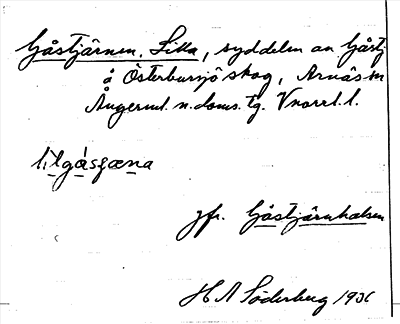 Gåstjärnen, Lilla, syddelen av Gåstj
å Österbursjö skog, Arnäs sn
Ångerml. n. doms. tg. Vnorrl. l.
lilgåsʂæna
jfr. Gåstjärnhalsen
H A Söderberg 1931